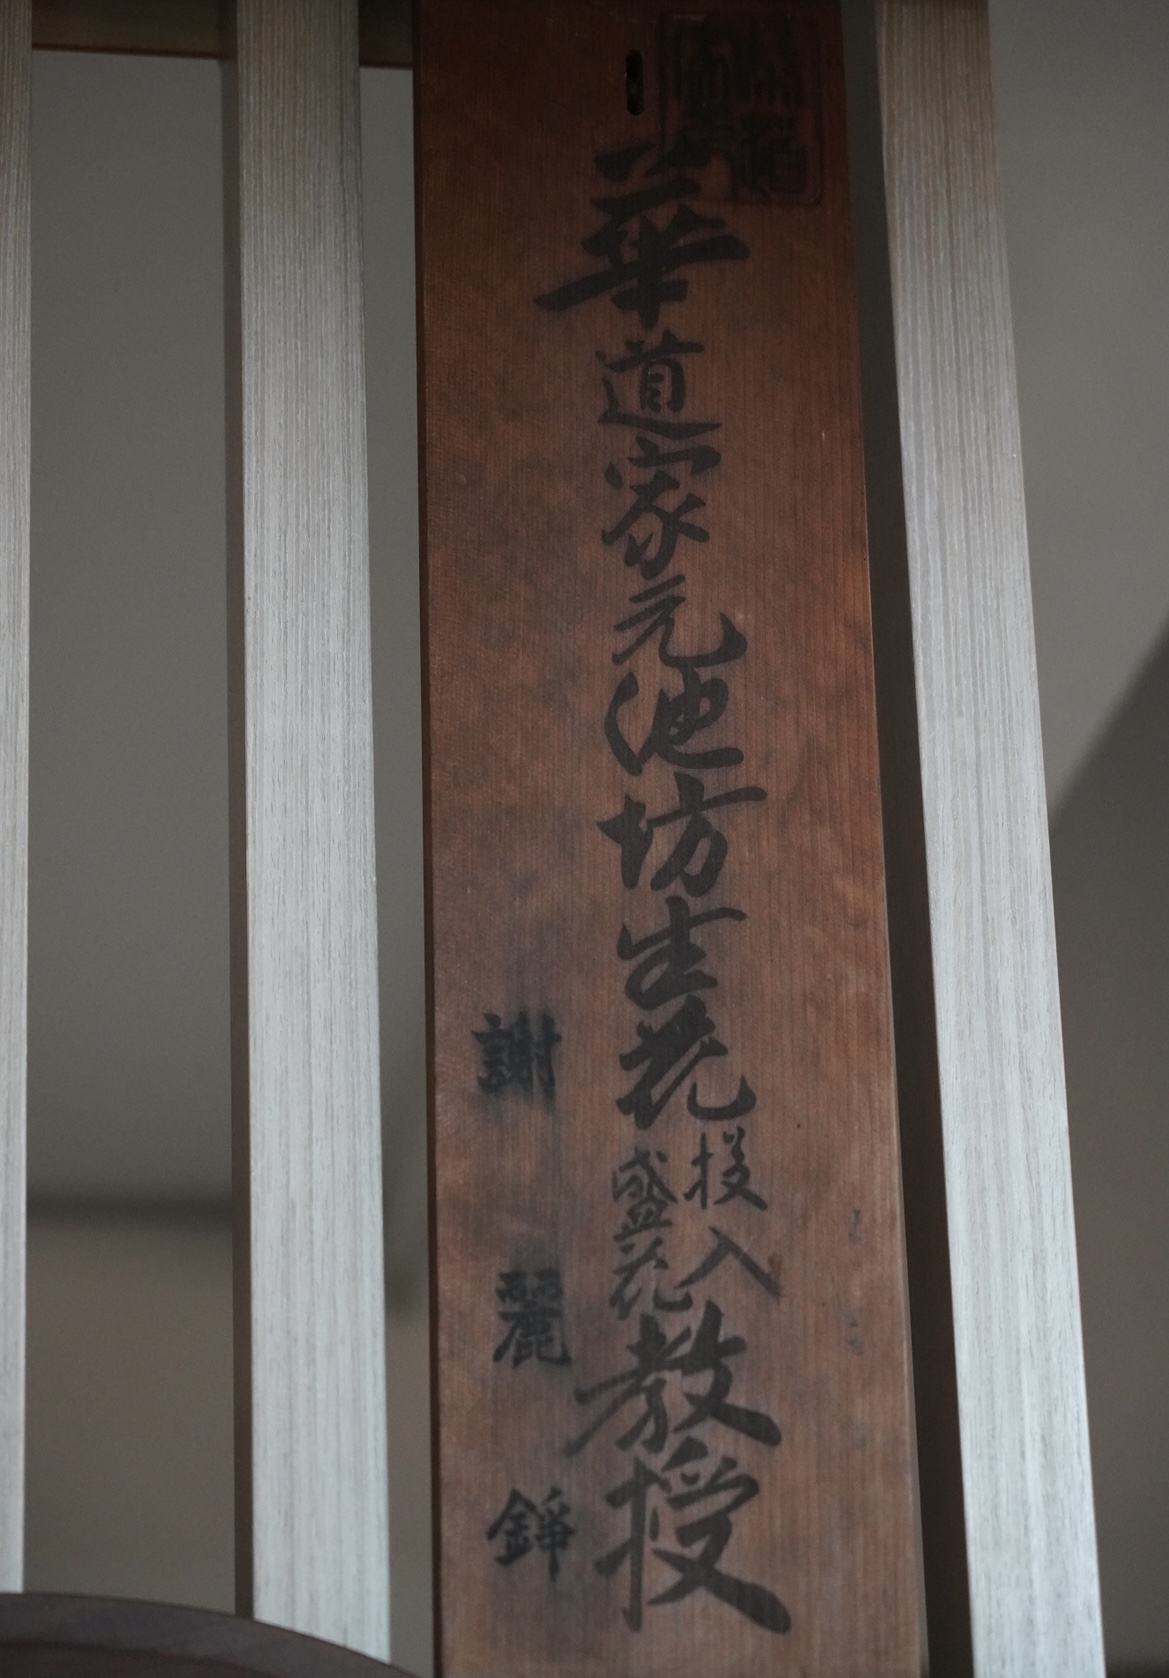 華道家元池坊生花
投入
盛花
教授
謝麗錚